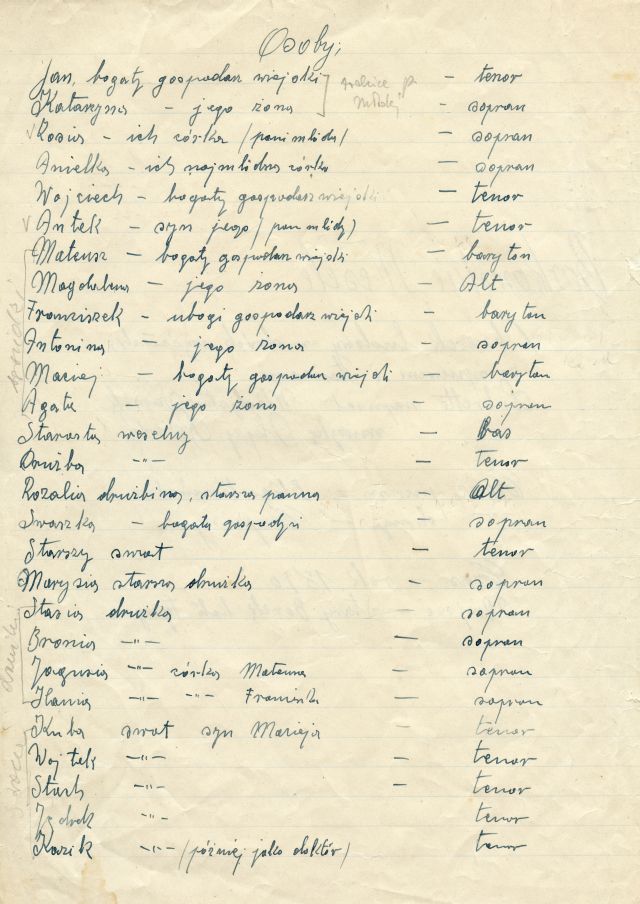 Osoby;
Jan, bogaty gospodarz wiejski - tenor
rodzice p.
młodej
Katarzyna - jego żona - sopran
Rozia - ich córka /panimłoda/ - sopran
Anielka - ich najmłodsza córka - sopran
Wojciech - bogaty gospodarz wiejski - tenor
Antek - syn jego /pan młody/ - tenor
Mateusz - bogaty gospodarz wiejski - baryton
Magdalena - jego żona - Alt
Franciszek - ubogi gospodarz wiejski - baryton
Antonina - jego żona - sopran
Maciej - bogaty gospodarz wiejski - baryton
Agata - jego żona - sopran
Starosta weselny - Bas
Drużba -"- - tenor
Rozalia drużbina, starsza panna - Alt
Swaszka - bogata gospodyni - sopran
Starszy swat - tenor
Marysia starsza drużka - sopran
Stasia drużka - sopran
Bronia -"- - sopran
Jagusia -"- córka Mateusza - sopran
Hania -"- -"- Franciszka - sopran
Kuba swat syn Macieja - tenor
Wojtek -"- - tenor
Stach -"- - tenor
Jędrek -"- tenor
Kazik -"- /później jako doktór/ tenor